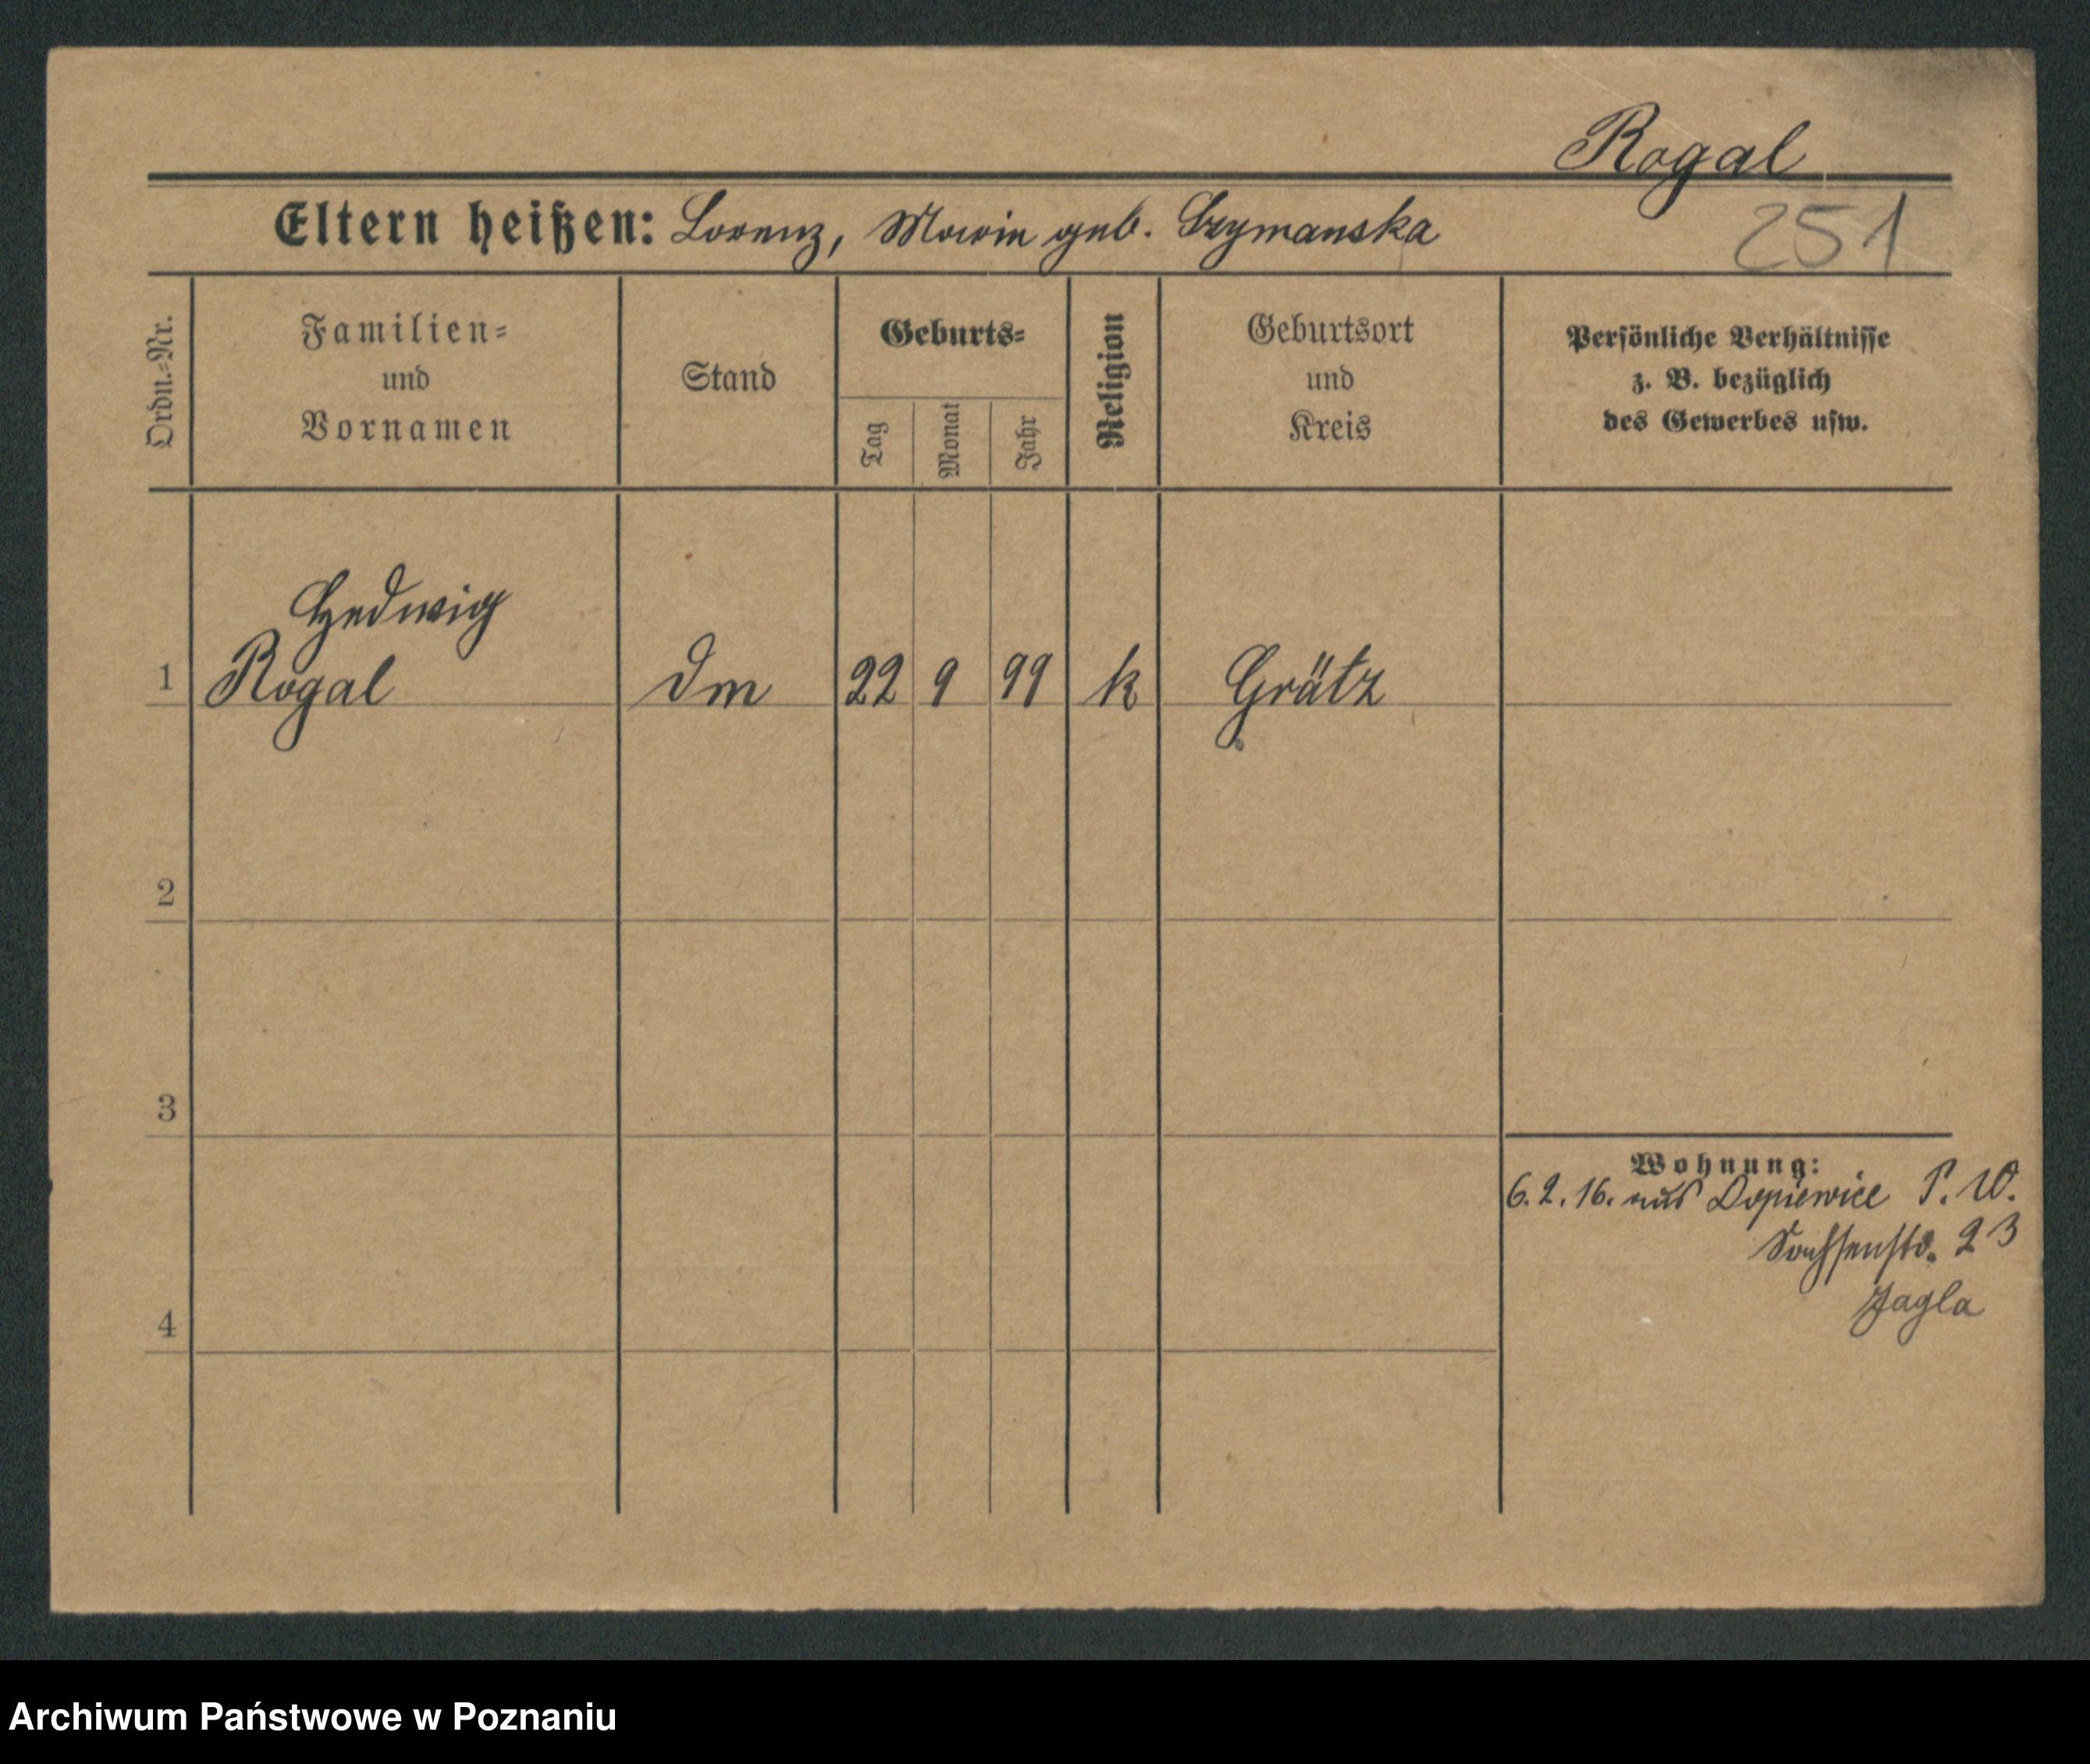 Rogal
Eltern heißen: Lorenz, Marie geb. Szymanska
251
Ordn.=Nr.
Familien=
und
Vornamen
Stand
Geburts=
Tag
Monat
Jahr
Religion
Geburtsort
und
Kreis
Persönliche Verhältnisse
z. B. bezüglich
des Gewerbes usw.
Hedwig
1 Rogal Dm 22 9 99 k Grätz
2
3
Wohnung:
6.2.16. aus Dopiewice P. W.
Sachsenstr. 23
Jagla
4
Archiwum Państwowe w Poznaniu